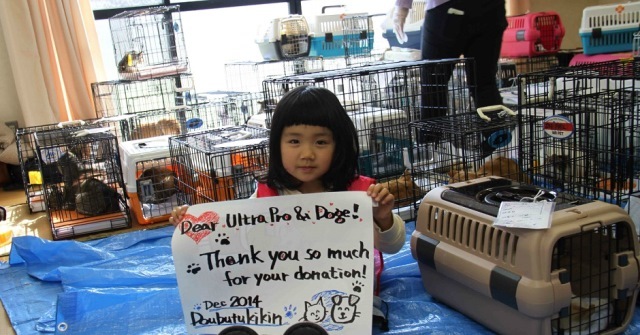 Dear Ultra Pro & Doge!
Thank you so much
for your donation!
Dec 2014
Doubutukikin